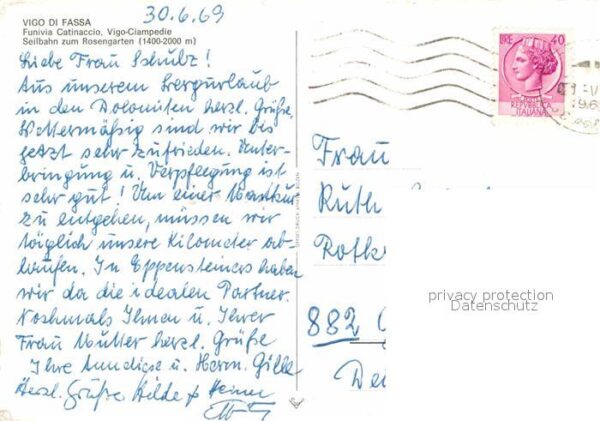 30.6.69
VIGO DI FASSA
Funivia Catinaccio, Vigo-Ciampedie
Seilbahn zum Rosengarten (1400-2000 m)
Liebe Frau Schulz!
Aus unserem Bergurlaub
in den Dolomiten herzl. Grüße.
Wettermäßig sind wir bis
jetzt sehr zufrieden. Unter-
bringung u. Verpflegung ist
sehr gut! Um einer Mastkur
zu entgehen, müssen wir
täglich unsere Kilometer ab-
laufen. In Eppensteiners haben
wir da die idealen Partner.
Nochmals Ihnen u. Ihrer
Frau Mutter herzl. Grüße
Ihre u. Herm.
Herzl. Grüße Hilde
LIRE 40
REPUBBLICA
ITALIANA
Frau
Ruth
Rotk
882
De
privacy protection
Datenschutz